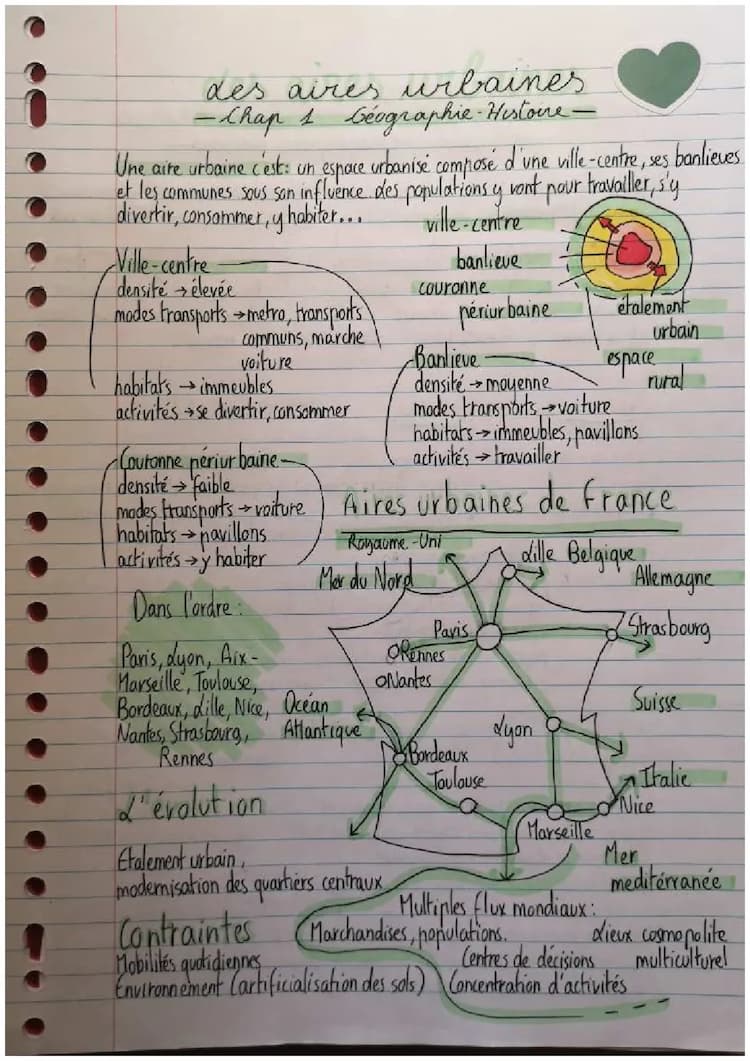 Les aires urbaines
- Chap 1 Géographie-Histoire -
Une aire urbaine c'est: un espace urbanisé composé d'une ville-centre, ses banlieues
et les communes sous son influence des populations y vont pour travailler, s'y
divertir, consommer, y habiter...
ville-centre
banlieue
couronne
périurbaine
étalement
urbain
espace
rural
Ville-centre
densité → élevée
modes transports → metro, transports
communs, marche
voiture
habitats → immeubles
activités → se divertir, consommer
Banlieue
densité → moyenne
modes transports → voiture
habitats → immeubles, pavillons
activités → travailler
Couronne périurbaine
densité → faible
modes transports → voiture
habitats → pavillons
activités → y habiter
Aires urbaines de France
Royaume-Uni
Mer du Nord
Lille Belgique
Allemagne
Paris
Strasbourg
Rennes
Nantes
Suisse
Océan
Atlantique
Lyon
Bordeaux
Toulouse
Italie
Nice
Marseille
Mer
mediterrranée
Dans l'ordre:
Paris, Lyon, Aix-
Marseille, Toulouse,
Bordeaux, Lille, Nice,
Nantes, Strasbourg,
Rennes
L'évolution
Etalement urbain,
modernisation des quartiers centraux
Contraintes
Mobilités quotidiennes
Environnement (artificialisation des sols)
Multiples flux mondiaux:
Marchandises, populations.
Lieux cosmopolite
Centres de décisions
multiculturel
Concentration d'activités